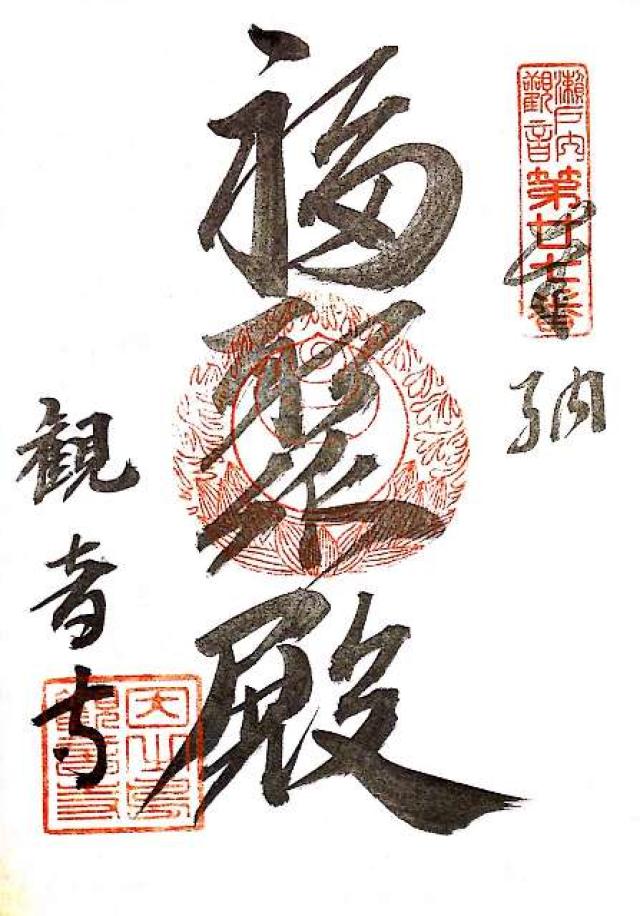 瀬戸内
觀音
第廿七番
奉納
福聚殿
観音寺